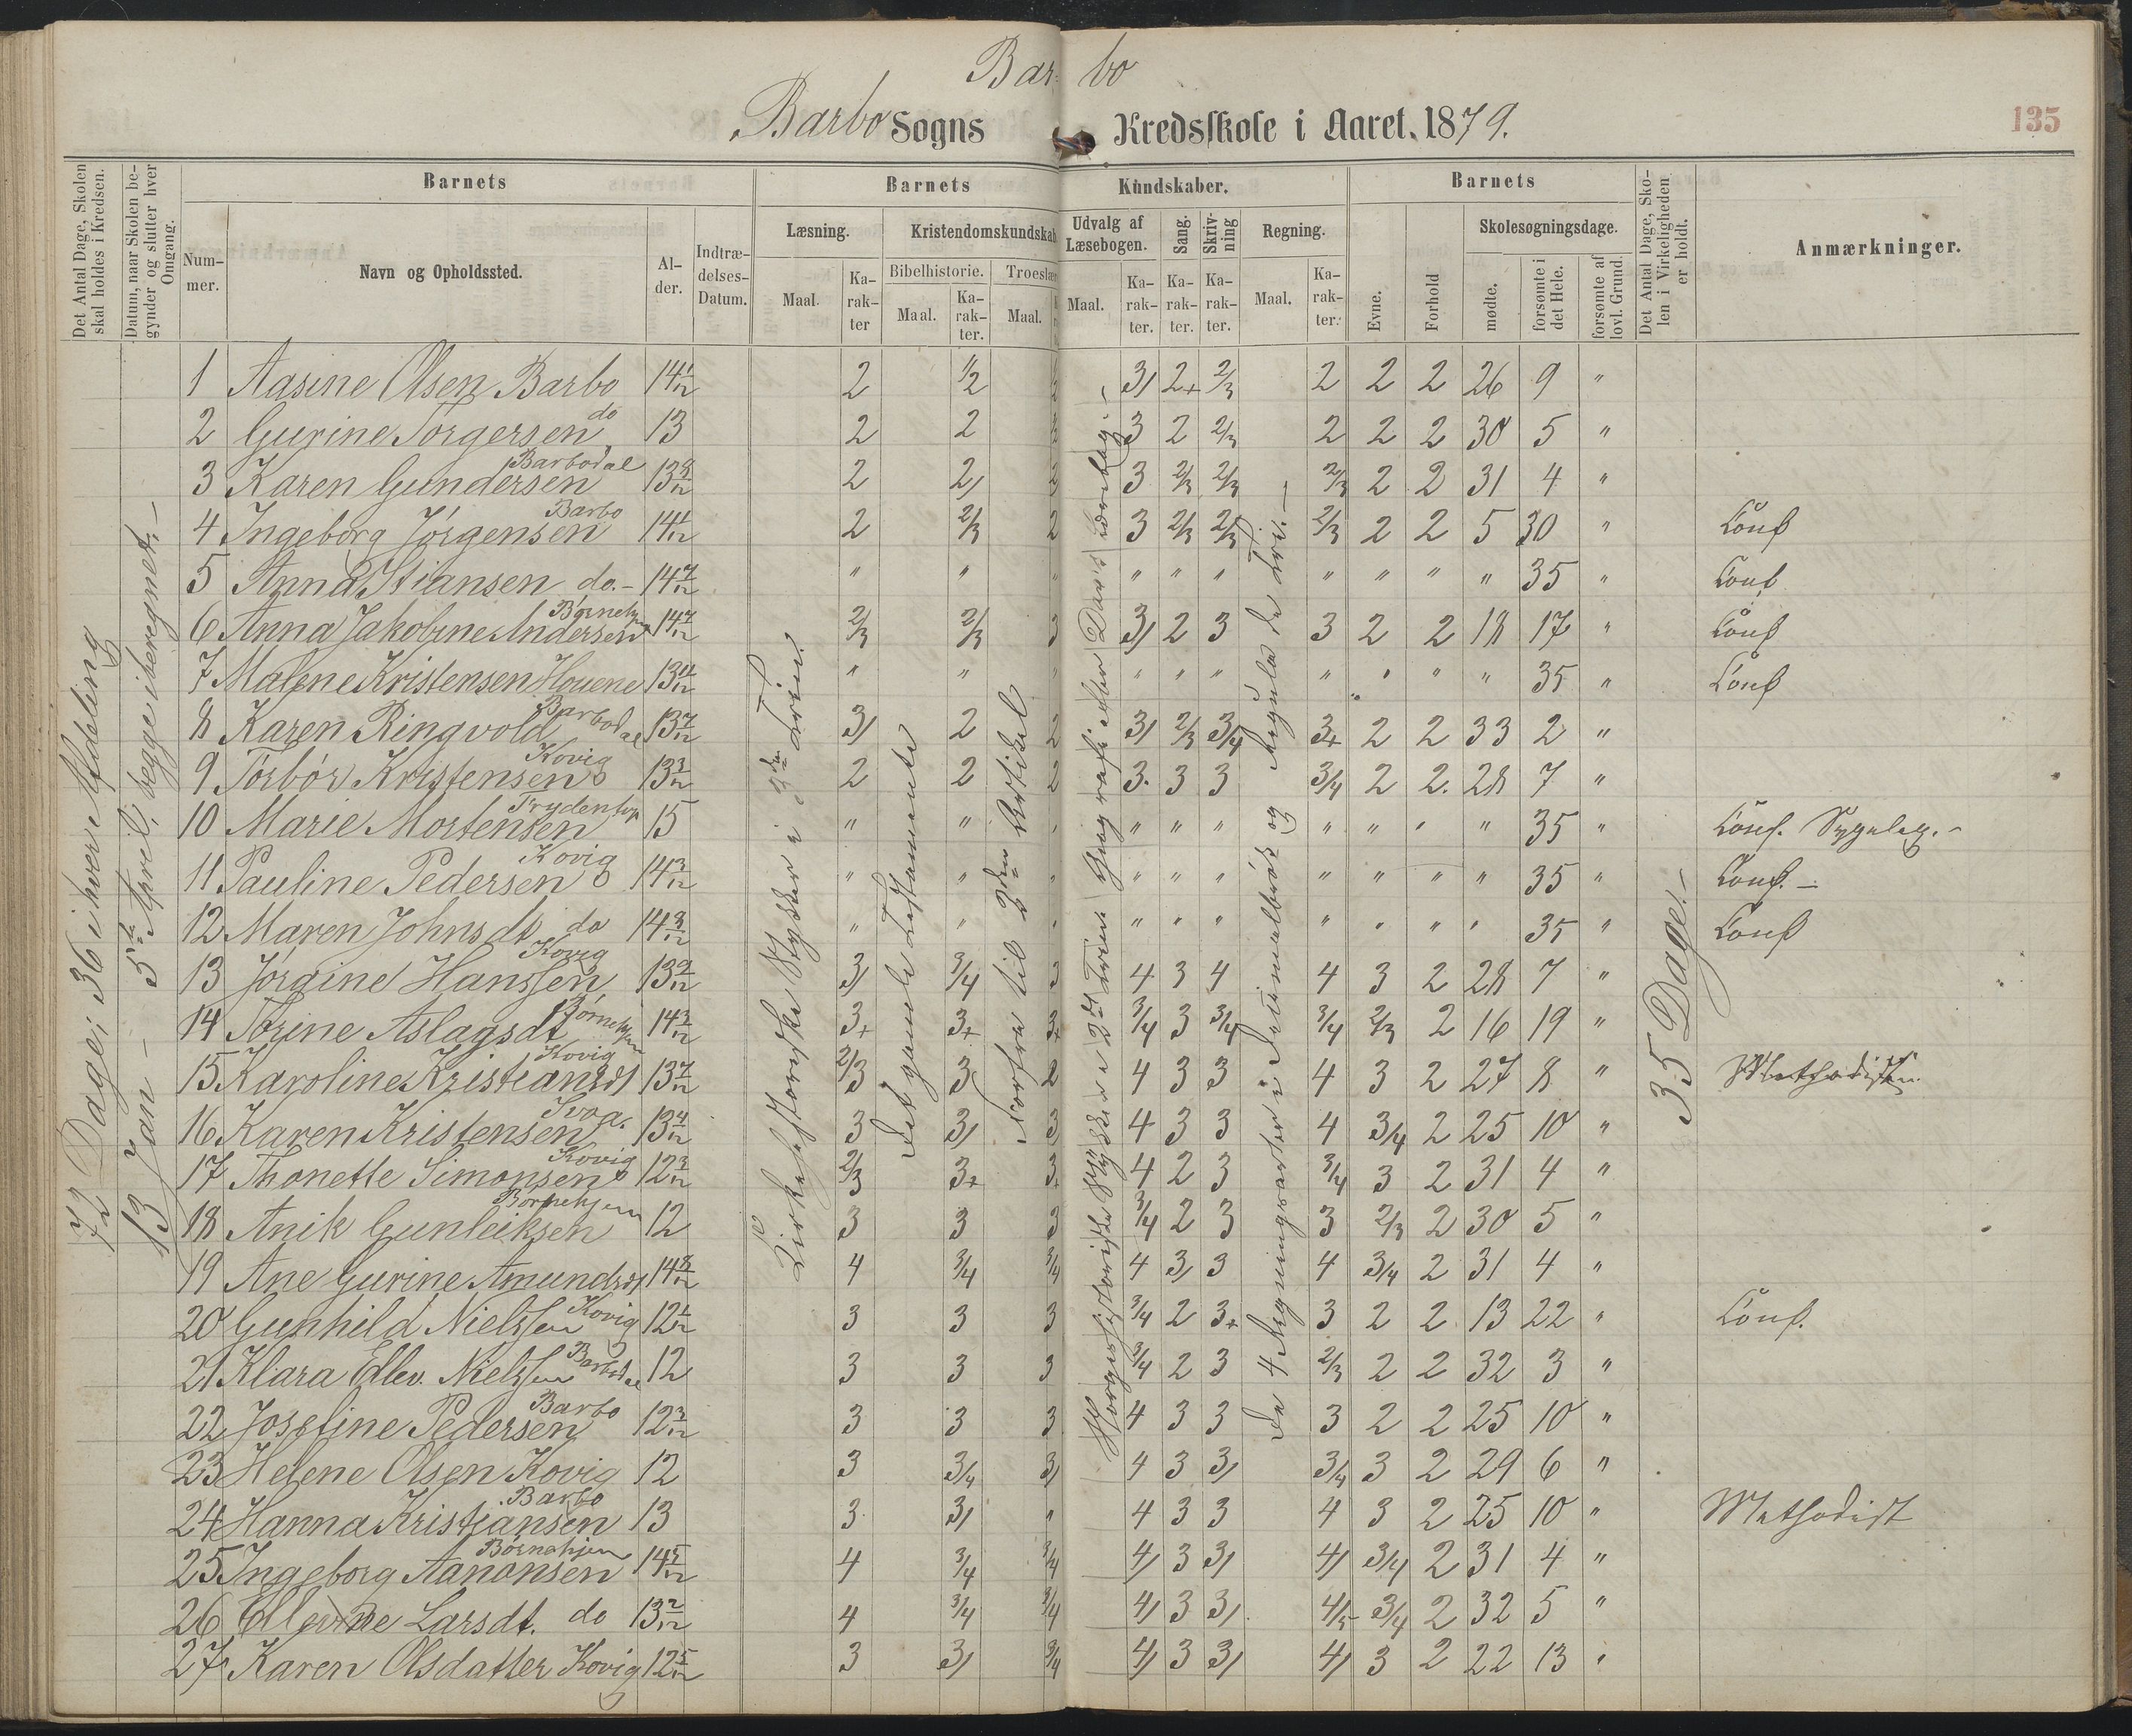 Bar- bo
Barbo Sogns Kredsskole i Aaret 1879.
135
Det Antal Dage, Skolen skal holdes i Kredsen.
Datum, naar Skolen begynder og slutter hver Omgang.
Barnets
Barnets Kundskaber.
Barnets
Det Antal Dage, Skolen i Virkeligheden er holdt.
Anmærkninger.
Nummer.
Navn og Opholdssted.
Alder.
Indtrædelses-Datum.
Læsning.
Kristendomskundskab
Udvalg af Læsebogen.
Sang.
Skrivning
Regning.
Evne.
Forhold
Skolesøgningsdage.
Bibelhistorie.
Troeslære
Maal.
Karakter
Maal.
Karakter.
Maal.
Maal.
Karakter.
Karakter.
Karakter.
Maal.
Karakter.
mødte.
forsømte i det Hele.
forsømte af lovl. Grund.
72 Dage; 36 i hver Afdeling
13 Jan - 5te April, begge iberegnet.-
Kirkehistoriske Stykker i 3die Trin.
Det gamle Testamente
Forfra til 3die Artikel
De 4 Regningsarter i Decimalbrøk og Regula de Tri.-
35 Dage.-
1 Aasine Olsen Barbo 14 1/12 2 1/2 3/ 2+ 2/3 2 2 2 26 9 "
2 Gurine Torgersen do 13 2 2 3 2 2/3 2 2 2 30 5 "
3 Karen Gundersen Barbodal 13 8/12 2 2/ 2 3 2/3 2/3 2/3 2 2 31 4 "
4 Ingeborg Jørgensen Barbo 14 1/12 2 2/3 2 3 2/3 2/3 2/3 2 2 5 30 " Conf
5 Anna Stiansen do.- 14 7/12 " " " " " " " " " " 35 " Conf
6 Anna Jakobine Andersen Børnehjem 14 7/12 2/3 2/3 3 3/ 2 3 3 2 2 18 17 " Conf
7 Malene Kristensen Houene 13 11/12 " " " " " " " " " " 35 " Conf
8 Karen Ringvold Barbodal 13 7/12 3/ 2 2 3/ 2/3 3/4 3+ 2 2 33 2 "
9 Torbør Kristensen Kovig 13 3/12 2 2 2 3. 3 3 3/4 2 2. 28 7 "
10 Marie Mortensen 15 " " " " " " " " " " 35 " Conf.
11 Pauline Pedersen Kovig 14 3/12 " " " " " " " " " " 35 " Conf.-
12 Maren Johnsdt do 14 8/12 " " " " " " " " " " 35 " Conf
13 Jørgine Hanssen Kovig 13 9/12 3/ 3/4 3 4 3 4 4 3 2 28 7 "
14 Torine Aslagsdt Børnehjem 14 3/12 3+ 3+ 3+ 3/4 3 3/4 3/4 2/3 2 16 19 "
15 Karoline Kristiansdt Kovig 13 7/12 2/3 3 2 4 3 3 4 3 2 27 8 "
16 Karen Kristensen 13 4/12 3 3/ 3 4 3 3 4 3/4 2 25 10 "
17 Thonette Simonsen Kovig 12 3/12 2/3 3+ 3+ 4 2 3 3/4 3 2 31 4 "
18 Anik Gunleiksen Børnehjem 12 3 3 3 3/4 2 3 3 2/3 2 30 5 "
19 Ane Gurine Amundsdt 14 8/12 4 3/4 3/4 4 3/ 3 4 3/4 2 31 4 "
20 Gunhild Nielssen Kovig 12 1/12 3 3 3 3/4 2 3+ 3 2 2 13 22 " Conf.
21 Klara Edlev. Nielssen Barbodal 12 3 3 3 3/4 2 3 2/3 2 2 32 3 "
22 Josefine Pedersen Barbo 12 3/12 3 3 3 4 3 3 3 2 2 25 10 "
23 Helene Olsen Kovig 12 3 3/4 3/ 4 3 3/ 3/4 3 2 29 6 "
24 Hanna Kristiansen Barbo 13 3 3/ " 4 3 3 4 3 2 25 10 " Methodist
25 Ingeborg Aanonsen Børnehjem 14 5/12 4 3/4 3/4 4/ 3 3/ 4/ 3/4 2 31 4 "
26 Ellevine Larsdt. do 13 2/12 4 3/4 3/4 4/ 3 3/ 4/5 3/4 2 32 5 "
27 Karen Olsdatter Kovig 12 5/12 3 3/ 3/4 4/ 3 3/ 4/ 3 2 22 13 "